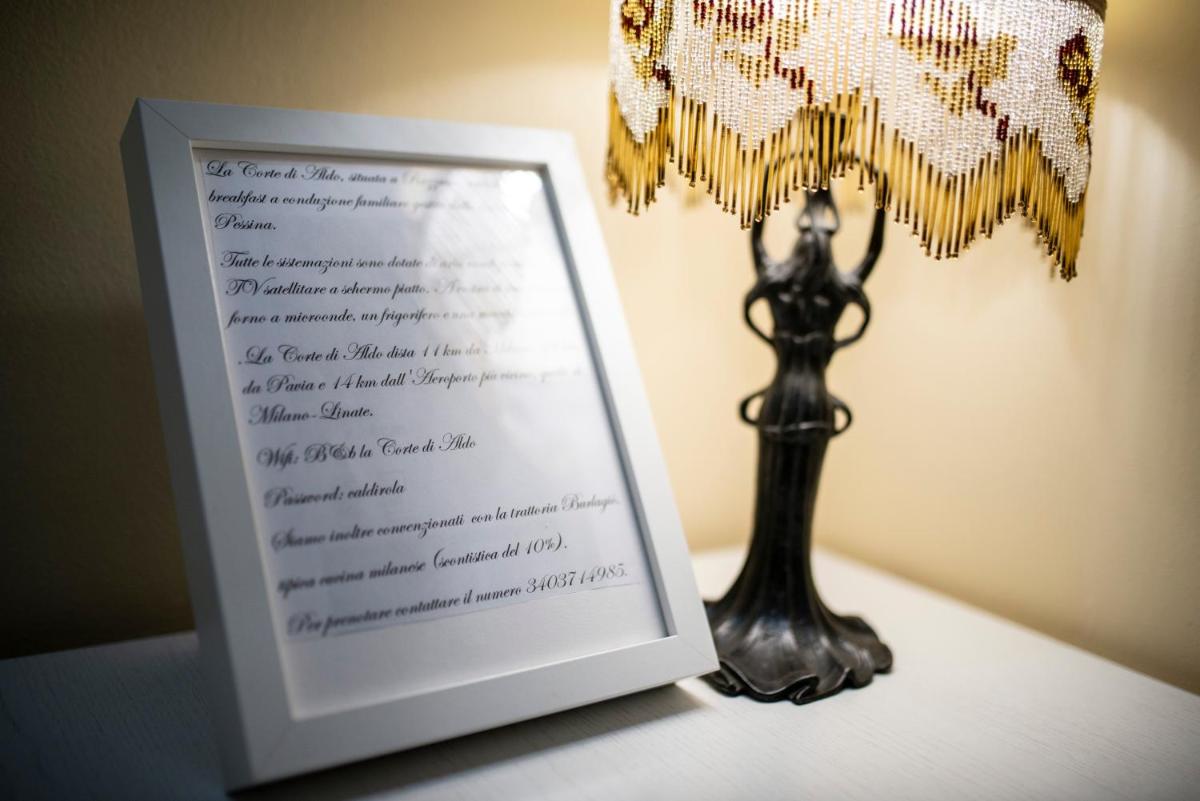 La Corte di Aldo, situata a
breakfast a conduzione familiare
Pessina.
Tutte le sistemazioni sono dotate
TV satellitare a schermo piatto.
forno a microonde, un frigorifero e
. La Corte di Aldo dista 11 km da
da Pavia e 14 km dall'Aeroporto più vicino, quello di
Milano-Linate.
Wifi: B&b la Corte di Aldo
Password: caldirola
Siamo inoltre convenzionati con la trattoria
tipica cucina milanese (scontistica del 10%).
Per prenotare contattare il numero 3403714985.